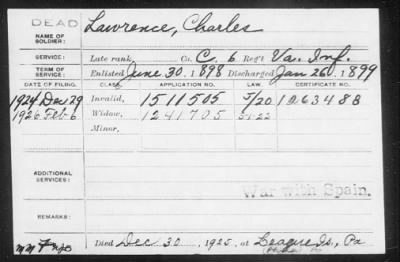 DEAD
NAME OF SOLDIER: Lawrence, Charles
SERVICE: Late rank, Co. C. 6 Reg't Va. Inf.
TERM OF SERVICE: Enlisted June 30. 1898 Discharged Jan 26. 1899
DATE OF FILING. CLASS. APPLICATION NO. LAW. CERTIFICATE NO.
1924 Dec 29 Invalid, 1511505 5/20 1263488
1926 Feb 6 Widow, 1241705 5-1-22
Minor,
ADDITIONAL SERVICES:
War with Spain.
REMARKS:
Died Dec 30, 1925, at League Is, Pa